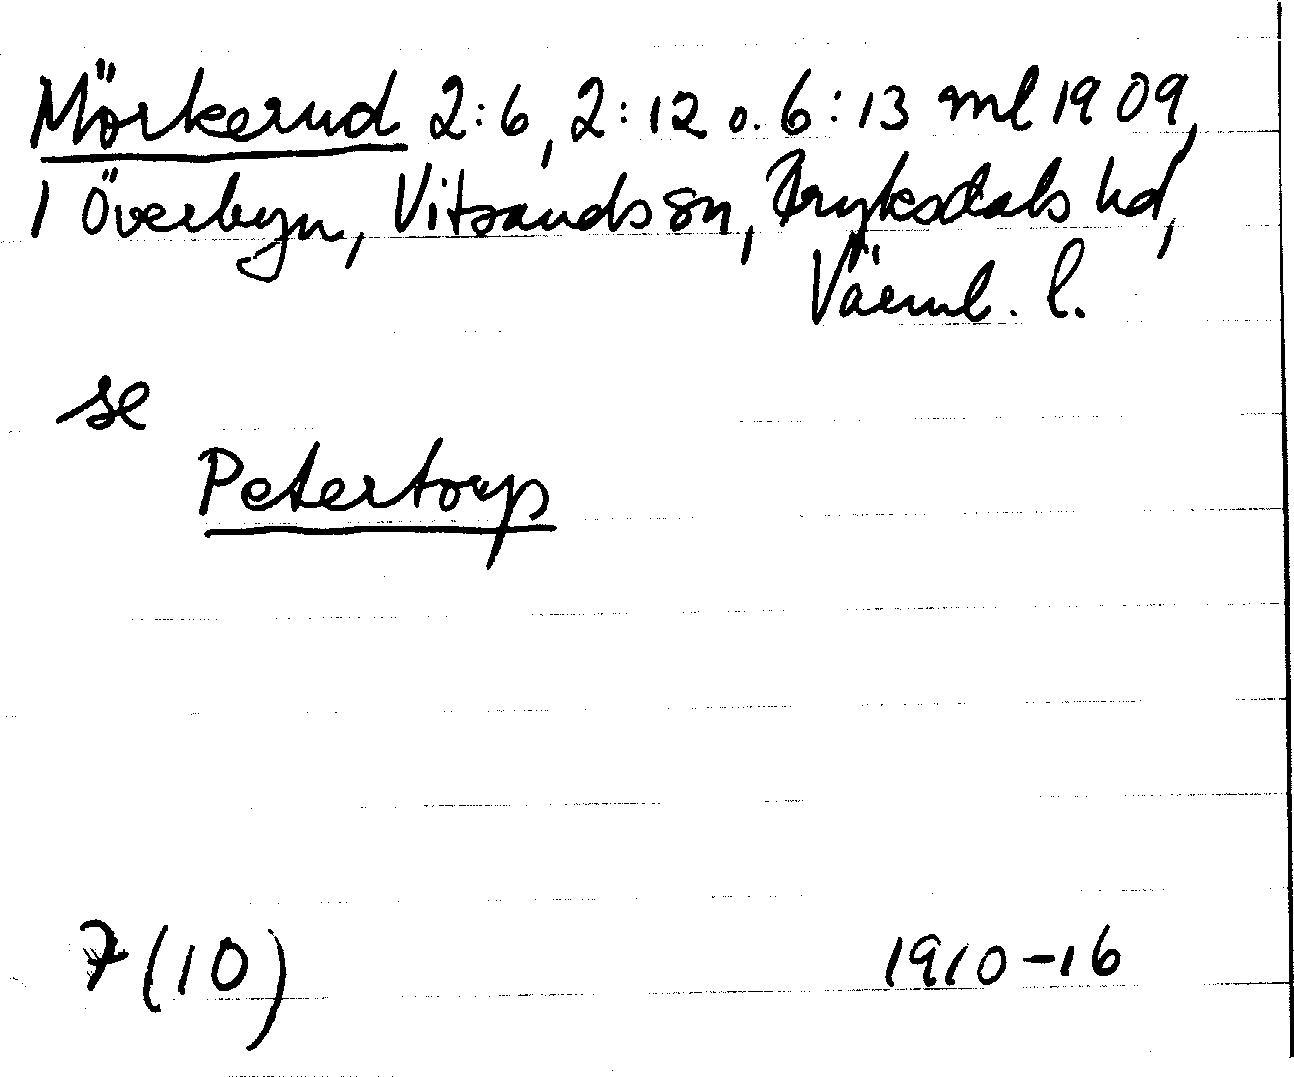 Mörkerud 2:6, 2:12 o. 6:13 ml 1909,
i Överbyn, Vitsands sn, Fryksdals hd,
Värml. l.
se
Petertorp
7(10)
1910-16